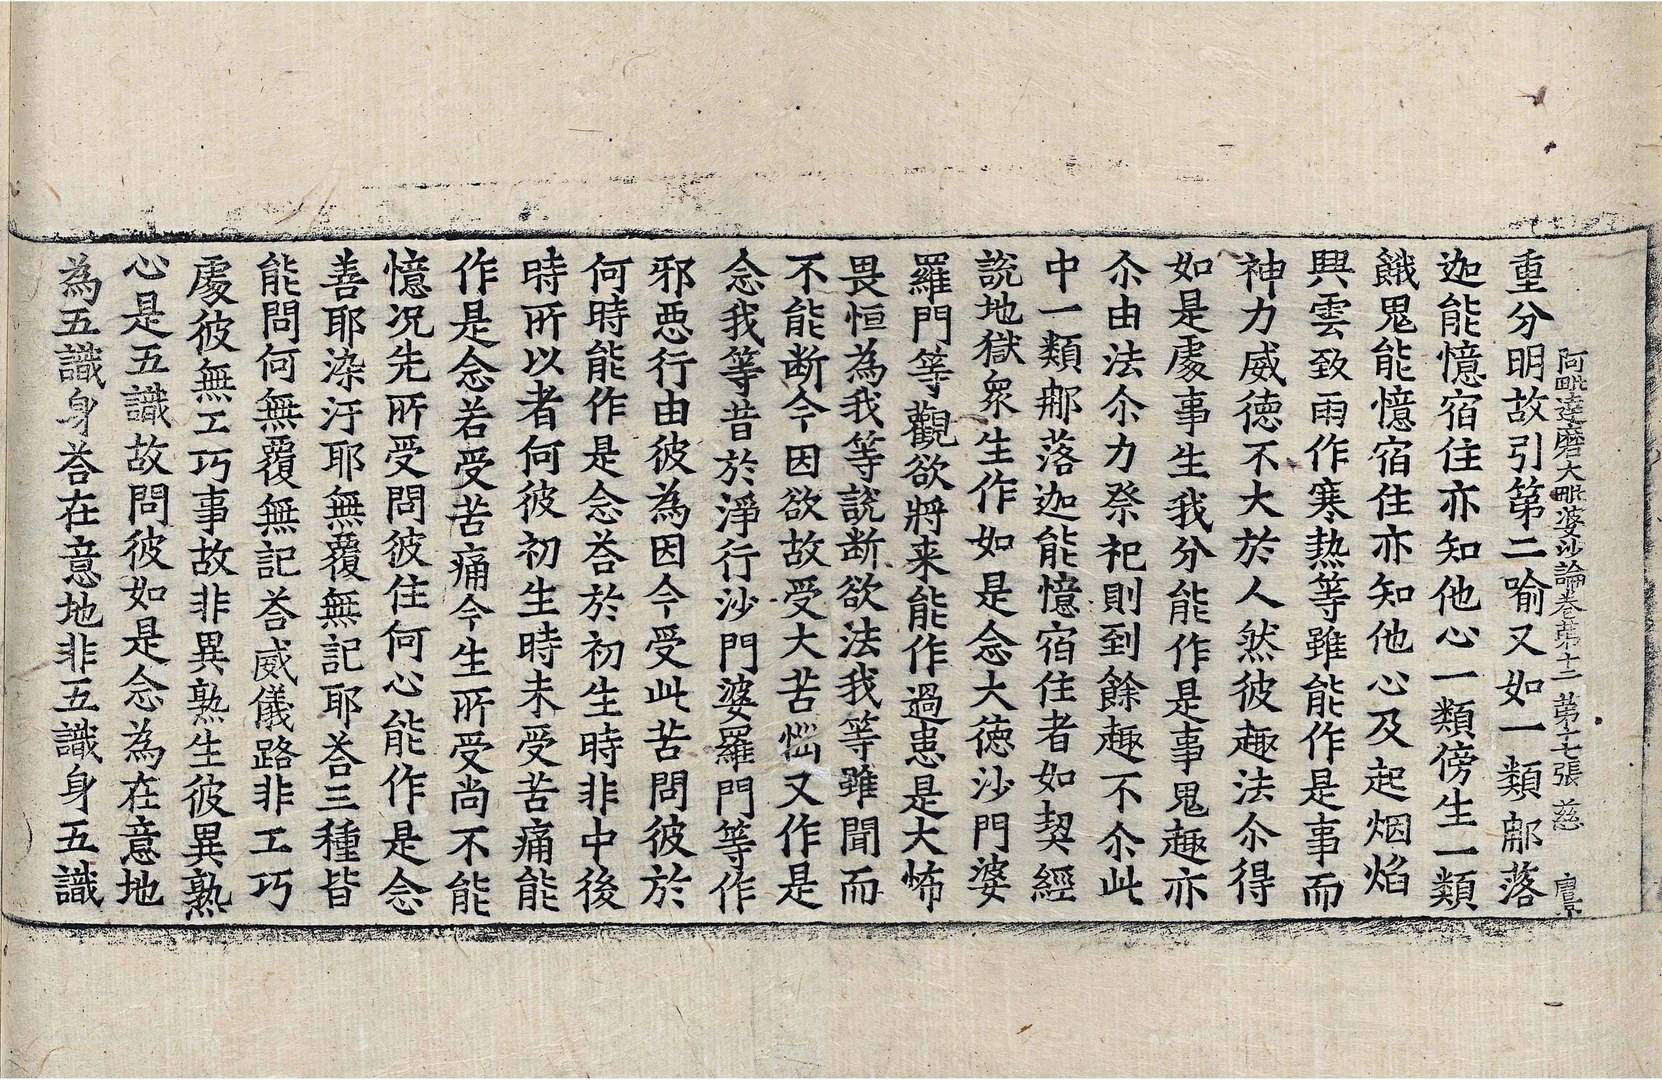 阿毗達磨大毗婆沙論卷第十二 第十七張 慈
重分明故引第二喻又如一類那落
迦能憶宿住亦知他心一類傍生一類
餓鬼能憶宿住亦知他心及起烟焰
興雲致雨作寒熱等雖能作是事而
神力威德不大於人然彼趣法尒得
如是處事生我分能作是事鬼趣亦
尒由法尒力祭祀則到餘趣不尒此
中一類那落迦能憶宿住者如契經
說地獄衆生作如是念大德沙門婆
羅門等觀欲將来能作過患是大怖
畏恒為我等說断欲法我等雖聞而
不能断今因欲故受大苦惱又作是
念我等昔於淨行沙門婆羅門等作
邪惡行由彼為因今受此苦問彼於
何時能作是念荅於初生時非中後
時所以者何彼初生時未受苦痛能
作是念若受苦痛今生所受尚不能
憶况先所受問彼住何心能作是念
善耶染汙耶無覆無記耶荅三種皆
能問何無覆無記荅威儀路非工巧
處彼無工巧事故非異熟生彼異熟
心是五識故問彼如是念為在意地
為五識身荅在意地非五識身五識